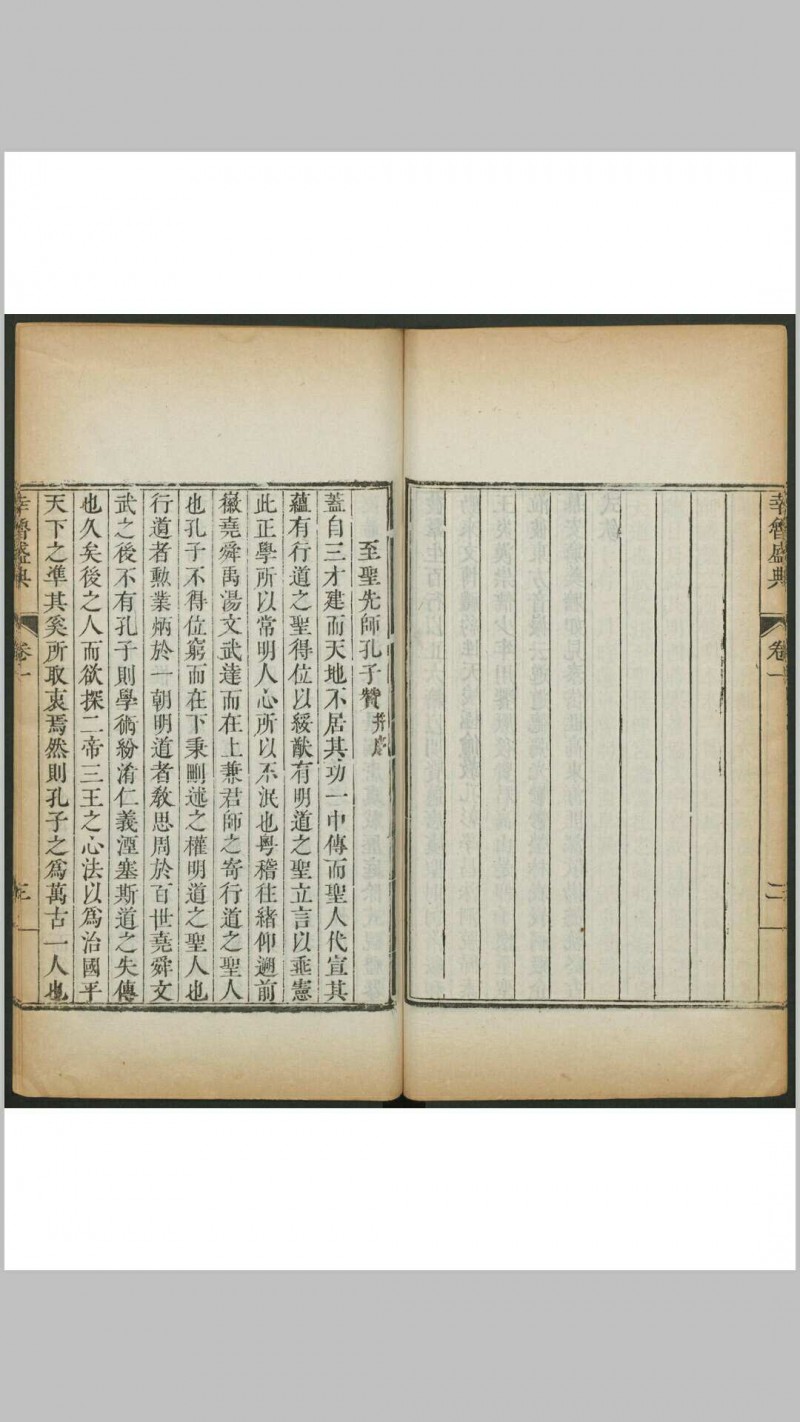 幸魯盛典
卷一
二
至聖先師孔子贊 并序
蓋自三才建而天地不居其功一中傳而聖人代宣其
蘊有行道之聖得位以綏猷有明道之聖立言以垂憲
此正學所以常明人心所以不泯也粵稽往緒仰遡前
徽堯舜禹湯文武達而在上兼君師之寄行道之聖人
也孔子不得位窮而在下秉刪述之權明道之聖人也
行道者勲業炳於一朝明道者敎思周於百世堯舜文
武之後不有孔子則學術紛淆仁義湮塞斯道之失傳
也久矣後之人而欲探二帝三王之心法以爲治國平
天下之準其奚所取衷焉然則孔子之爲萬古一人也
幸魯盛典
卷一
三